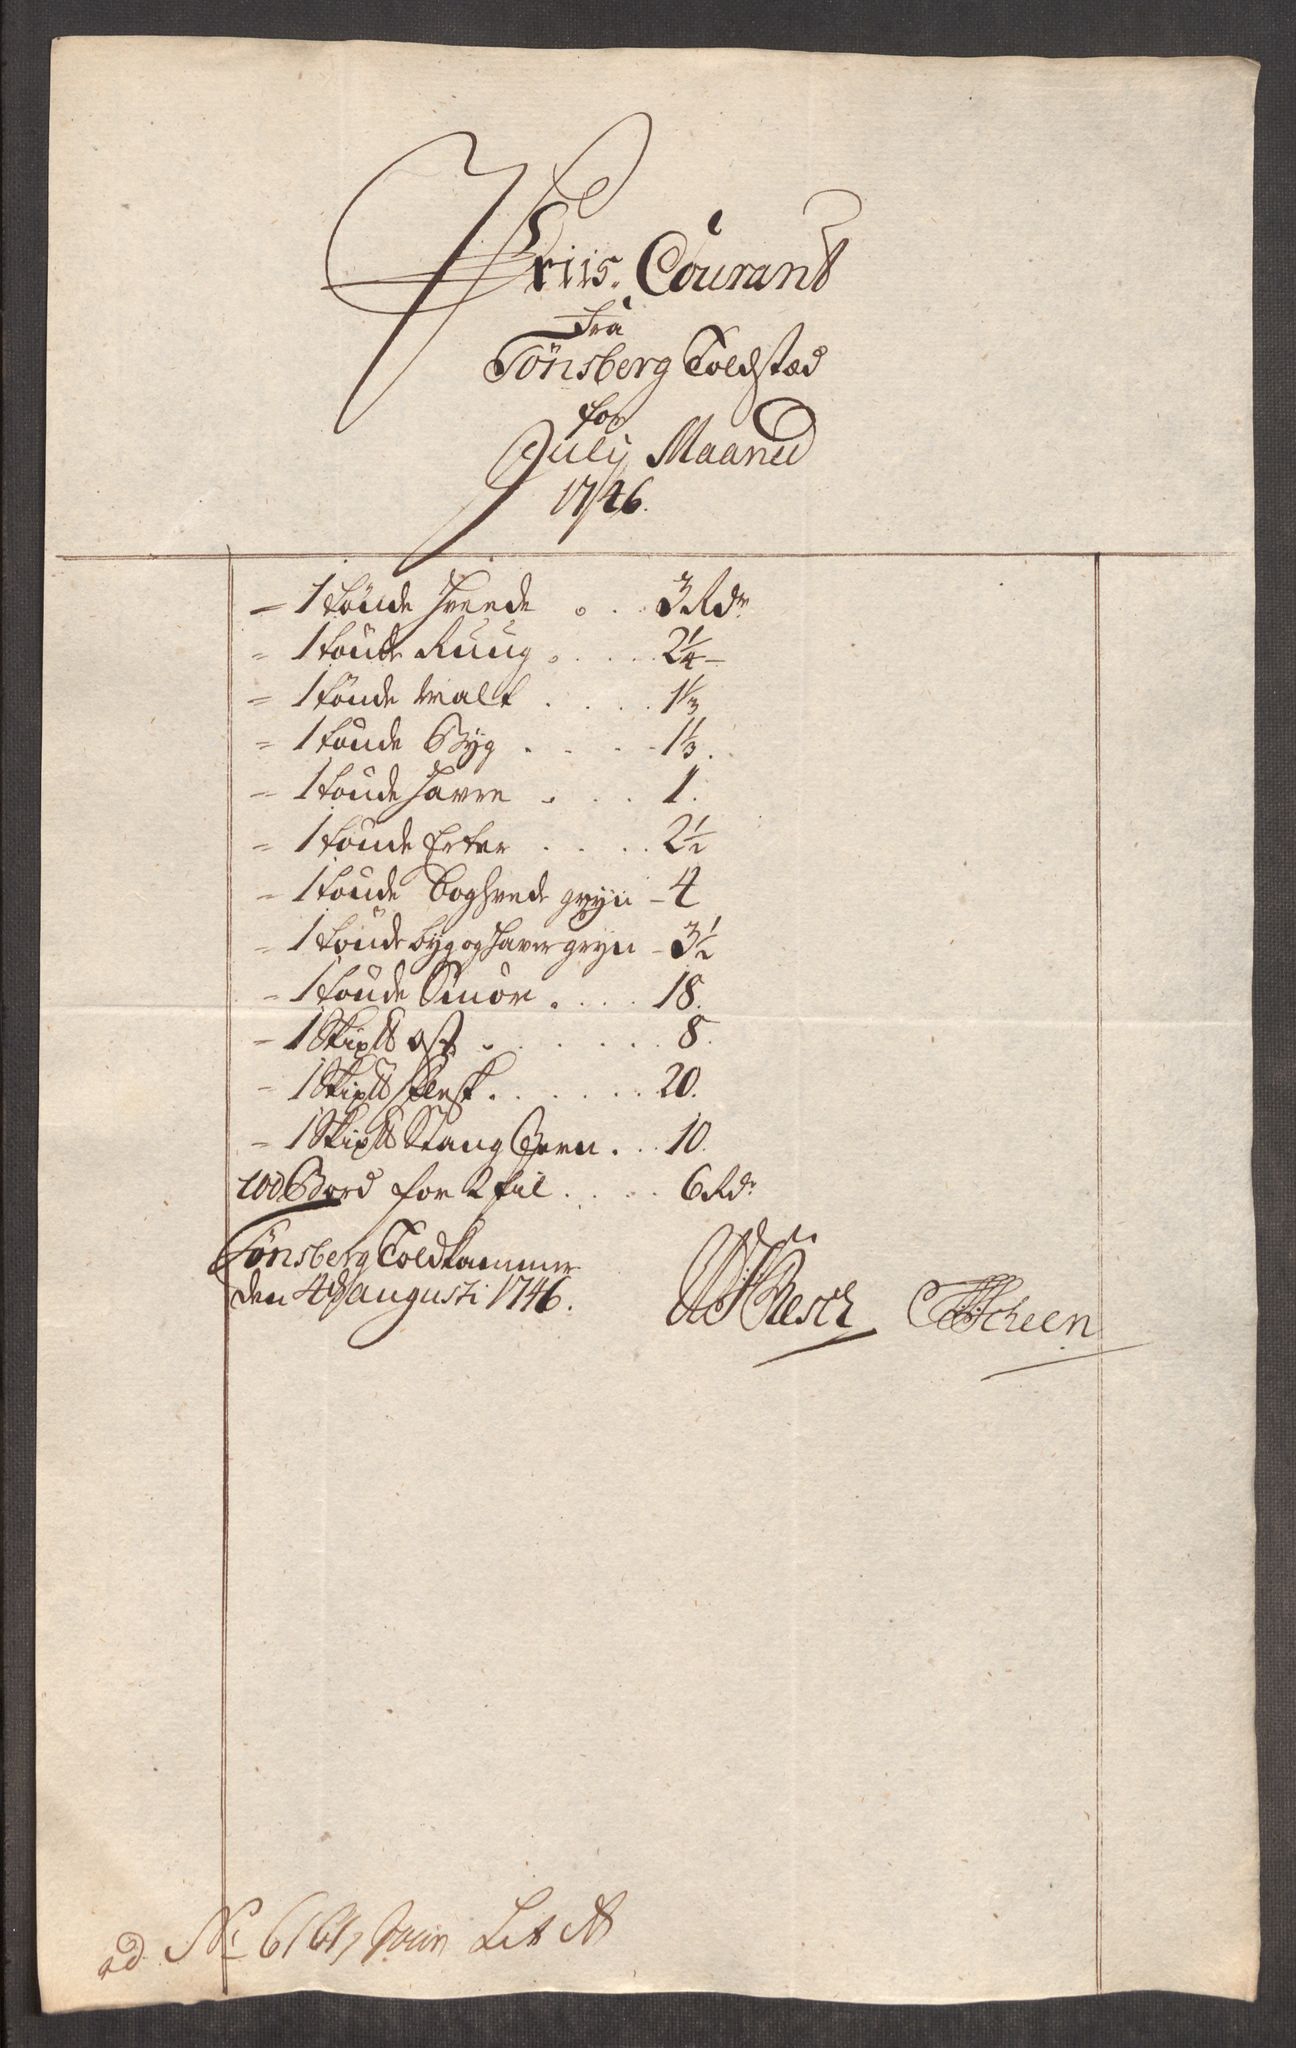 Priis. Courant
fra
Tönsberg Toldsted
for
July Maaned
1746.
- 1 tönde Hvede . . . 3 Rdr
- 1 tönde Ruug . . . . 2 1/4 -
- 1 tönde Malt . . . . 1 1/3
- 1 tönde Byg . . . . 1 1/3.
- 1 tönde Havre . . . 1.
- 1 tönde Erter . . . . 2 1/2
- 1 tönde Boghvede gryn - 4
- 1 tönde byg og Havre gryn - 3 1/2
- 1 tönde Smör . . . . 18.
- 1 Skip℔ ost . . . . . 8.
- 1 Skip℔ flesk . . . . . 20.
- 1 Skip℔ Stang Jern . . . 10.
100 Bord for 2 ful . . . . 6 Rdr
Tönsberg Toldkammer
den 4de augusti 1746.
Resch Scheen
ad No Lit A